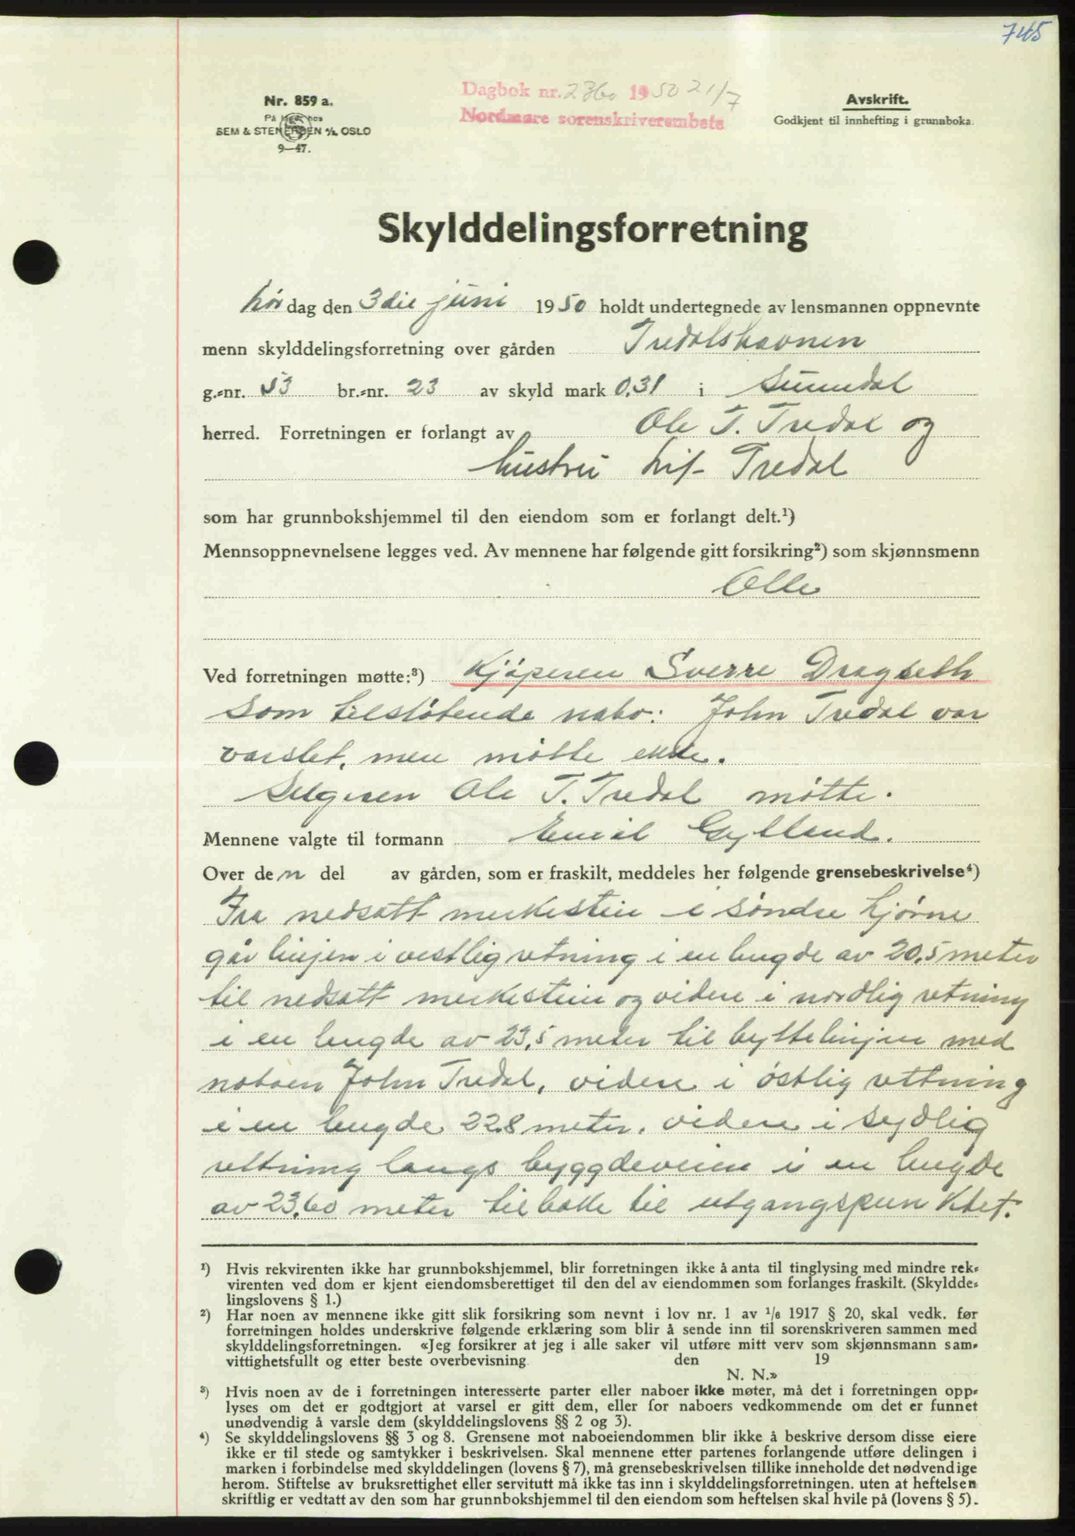 745
Nr. 859 a.
På lager hos
SEM & STENERSEN A/S, OSLO
9—47.
Dagbok nr. 2360 1950 21/7
Nordmøre sorenskriverembete
Avskrift.
Godkjent til innhefting i grunnboka.
Skylddelingsforretning
Lør dag den 3die juni 1950 holdt undertegnede av lensmannen oppnevnte
menn skylddelingsforretning over gården Tredalshavnen
g.-nr. 53 br.-nr. 23 av skyld mark 0,31 i Sunndal
herred. Forretningen er forlangt av Ole T. Tredal og
hustru Lif Tredal
som har grunnbokshjemmel til den eiendom som er forlangt delt.¹)
Mennsoppnevnelsene legges ved. Av mennene har følgende gitt forsikring²) som skjønnsmenn
Alle
Ved forretningen møtte:³) Kjøperen Sverre Dragseth
Som tilstøtende nabo: John Tredal var
varslet, men møtte ikke.
Selgeren Ole T. Tredal møtte.
Mennene valgte til formann Emil Gylland.
Over den del av gården, som er fraskilt, meddeles her følgende grensebeskrivelse⁴)
Fra nedsatt merkestein i søndre hjørne
går linjen i vestlig retning i en lengde av 20,5 meter
til nedsatt merkestein og videre i nordlig retning
i en lengde av 23,5 meter til byttelinjen med
naboen John Tredal, videre i østlig rettning
i en lengde 22.8 meter, videre i sydlig
rettning langs byggdeveien i en lengde
av 23,60 meter tilbake til utgangspunktet.
¹) Hvis rekvirenten ikke har grunnbokshjemmel, blir forretningen ikke å anta til tinglysing med mindre rek-
virenten ved dom er kjent eiendomsberettiget til den del av eiendommen som forlanges fraskilt. (Skyldde-
lingslovens § 1.)
²) Har noen av mennene ikke gitt slik forsikring som nevnt i lov nr. 1 av 1/6 1917 § 20, skal vedk. før
forretningen holdes underskrive følgende erklæring som blir å sende inn til sorenskriveren sammen med
skylddelingsforretningen. «Jeg forsikrer at jeg i alle saker vil utføre mitt verv som skjønnsmann sam-
vittighetsfullt og etter beste overbevisning. den 19
N. N.»
³) Hvis noen av de i forretningen interesserte parter eller naboer ikke møter, må det i forretningen opp-
lyses om det er godtgjort at varsel er gitt dem, eller for naboers vedkommende om det er funnet
unødvendig å varsle dem (skylddelingslovens §§ 2 og 3).
⁴) Se skylddelingslovens §§ 3 og 8. Grensene mot naboeiendommen blir ikke å beskrive dersom disse eiere
ikke er til stede og samtykker i beskrivelsen. Skal mennene etter partenes forlangende utføre delingen i
marken i forbindelse med skylddelingen (lovens § 7), må grensebeskrivelsen tillike inneholde det nødvendige
herom. Stiftelse av bruksrettighet eller servitutt må ikke tas inn i skylddelingsforretningen, uten at heftelsen
skriftlig er vedtatt av den som har grunnbokshjemmel til den eiendom som heftelsen skal hvile på (lovens § 5).